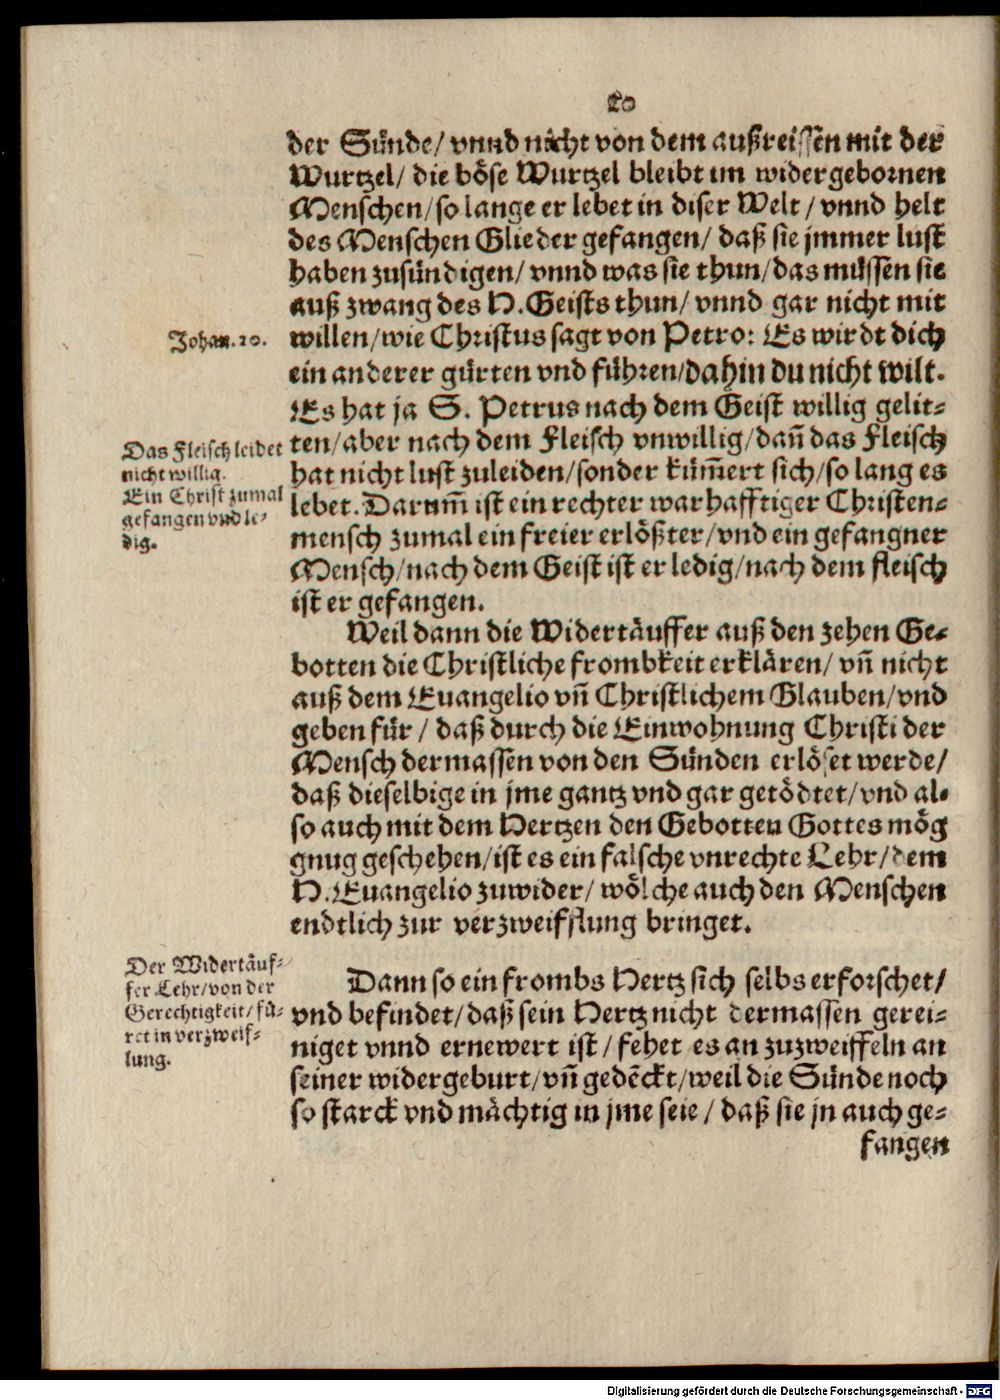 10
der Sünde/ vnnd nicht von dem außreissen mit der
Wurtzel/ die böse Wurtzel bleibt im widergebornen
Menschen/ so lange er lebet in diser Welt/ vnnd helt
des Menschen Glieder gefangen/ daß sie jmmer lust
haben zusündigen/ vnnd was sie thun/ das müssen sie
auß zwang des H. Geists thun/ vnnd gar nicht mit
Johan. 20.
willen/ wie Christus sagt von Petro: Es wirdt dich
ein anderer gürten vnd führen/ dahin du nicht wilt.
Es hat ja S. Petrus nach dem Geist willig gelit-
Das Fleisch leidet
nicht willig.
ten/ aber nach dem Fleisch vnwillig/ dañ das Fleisch
hat nicht lust zuleiden/ sonder küm̃ert sich/ so lang es
Ein Christ zumal
gefangen vnd le-
dig.
lebet. Darum̃ ist ein rechter warhafftiger Christen-
mensch zumal ein freier erlößter/ vnd ein gefangner
Mensch/ nach dem Geist ist er ledig/ nach dem fleisch
ist er gefangen.
Weil dann die Widertäuffer auß den zehen Ge-
botten die Christliche frombkeit erklären/ vñ nicht
auß dem Euangelio vñ Christlichem Glauben/ vnd
geben für/ daß durch die Einwohnung Christi der
Mensch dermassen von den Sünden erlöset werde/
daß dieselbige in jme gantz vnd gar getödtet/ vnd al-
so auch mit dem Hertzen den Gebotten Gottes mög
gnug geschehen/ ist es ein falsche vnrechte Lehr/ dem
H. Euangelio zuwider/ wölche auch den Menschen
endtlich zur verzweifflung bringet.
Der Widertäuf-
fer Lehr/ von der
Gerechtigkeit/ fü-
ret in verzweif-
lung.
Dann so ein frombs Hertz sich selbs erforschet/
vnd befindet/ daß sein Hertz nicht dermassen gerei-
niget vnnd ernewert ist/ fehet es an zuzweiffeln an
seiner widergeburt/ vñ gedẽckt/ weil die Sünde noch
so starck vnd mächtig in jme seie/ daß sie jn auch ge-
fangen
Digitalisierung gefördert durch die Deutsche Forschungsgemeinschaft - DFG